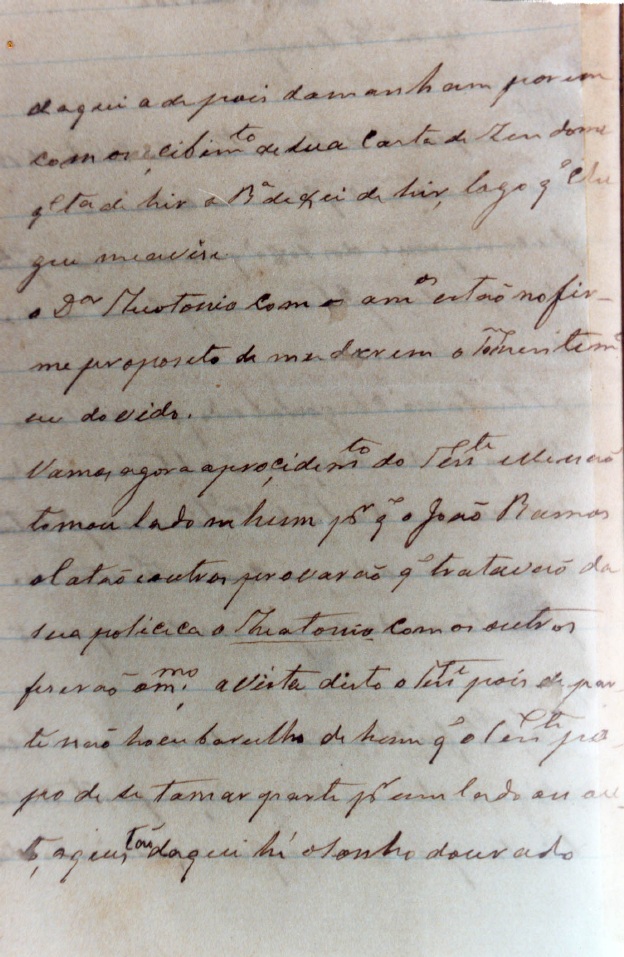 daqui a depois damanham porem
com o recibim.to de sua Carta de
q.l ta de hir a B.a deixei de hir, logo q.e
gue me avise
o D.or Theotonio com os am.os estão no fir-
me proposito de me
eu dovido.
Vamos agora aprocidem.to do Ten.te elle não
tomou lado nhum p.r q.e o João Ramos
e outros provarão q.e tratavão da
sua policica o Theotonio com os outros
feserão o m.mo, a vista disto o Ten.te pois de par
te não houve barulho de hum q.e o Ten.te
de se tomar parte p.r um lado ou ou-
tão daqui hé o sonho dourado